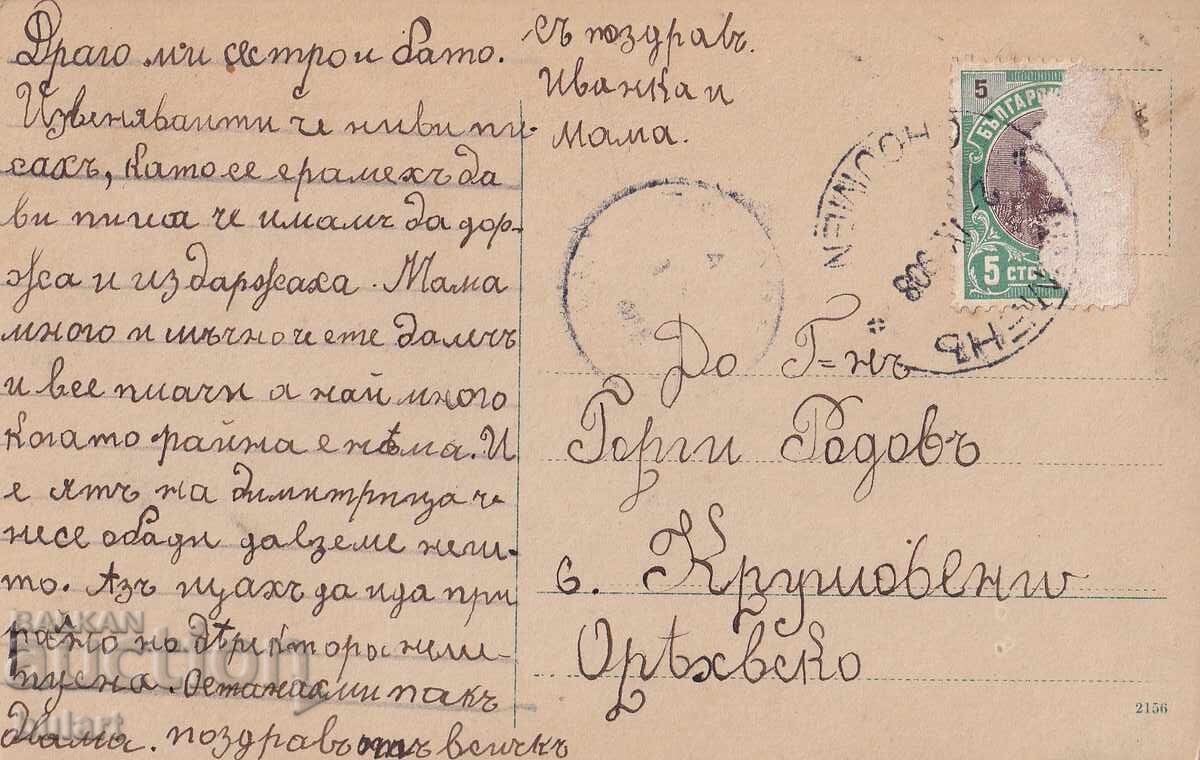 Драго ми сестро и бато.
Извенявайти че ниви пи-
сахъ, като се срамехъ да
ви пиша че имамъ да дор-
жа и издаржаха. Мама
много и мъчно че сте далечъ
и все плачи а най много
когато райна е нѣма. И
е ятъ на димитрица че
несе обади давземе нещи-
то. Азъ щахъ да ида при
райно но дѣректора нели-
пусна. Останахми пакъ
двама. поздравъ отъ всичкъ
съ поздравъ.
Иванка и
Мама.
До Г=нъ
Герги Родовъ
с. Крушовени
Орѣхвско
5
БЪЛГАРСК
5 СТО
2156
BALKAN
auction
bulart